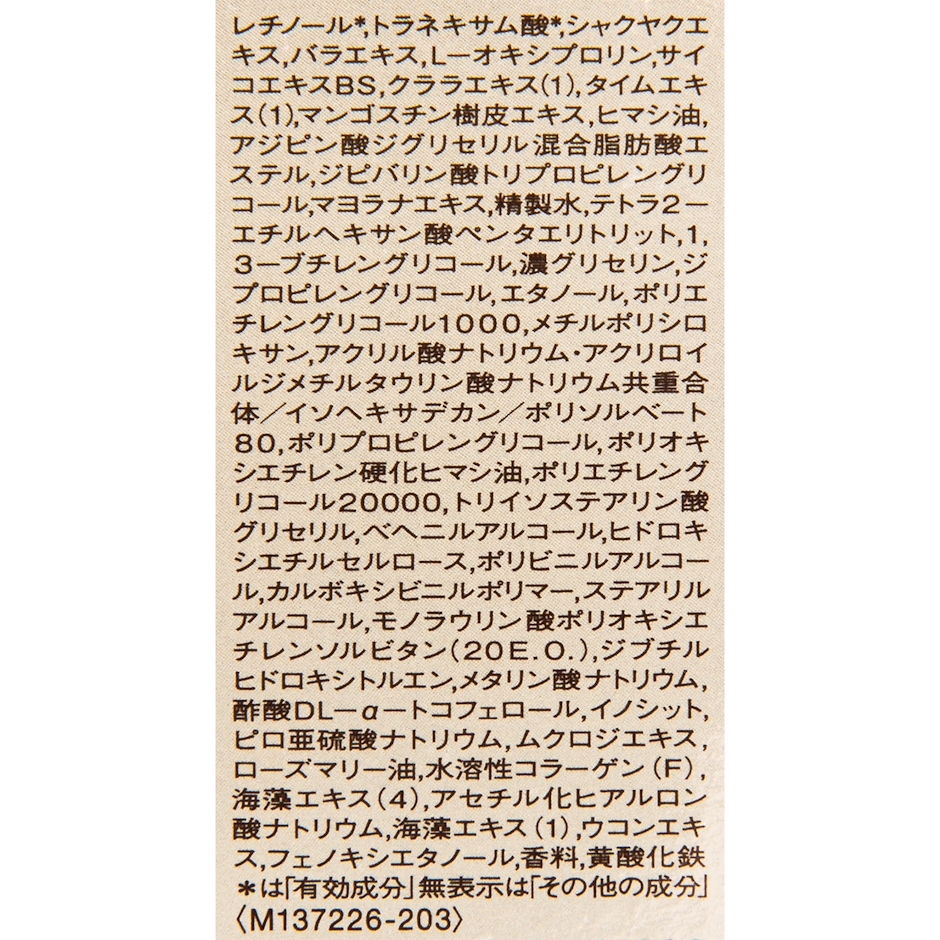 レチノール*,トラネキサム酸*,シャクヤクエ
キス,バラエキス,L-オキシプロリン,サイ
コエキスBS,クララエキス(1),タイムエキ
ス(1),マンゴスチン樹皮エキス,ヒマシ油,
アジピン酸ジグリセリル混合脂肪酸エ
ステル,ジピバリン酸トリプロピレングリ
コール,マヨラナエキス,精製水,テトラ2-
エチルヘキサン酸ペンタエリトリット,1,
3-ブチレングリコール,濃グリセリン,ジ
プロピレングリコール,エタノール,ポリエ
チレングリコール1000,メチルポリシロ
キサン,アクリル酸ナトリウム・アクリロイ
ルジメチルタウリン酸ナトリウム共重合
体/イソヘキサデカン/ポリソルベート
80,ポリプロピレングリコール,ポリオキ
シエチレン硬化ヒマシ油,ポリエチレング
リコール20000,トリイソステアリン酸
グリセリル,ベヘニルアルコール,ヒドロキ
シエチルセルロース,ポリビニルアルコー
ル,カルボキシビニルポリマー,ステアリル
アルコール,モノラウリン酸ポリオキシエ
チレンソルビタン(20E.O.),ジブチル
ヒドロキシトルエン,メタリン酸ナトリウム,
酢酸DL-α-トコフェロール,イノシット,
ピロ亜硫酸ナトリウム,ムクロジエキス,
ローズマリー油,水溶性コラーゲン(F),
海藻エキス(4),アセチル化ヒアルロン
酸ナトリウム,海藻エキス(1),ウコンエキ
ス,フェノキシエタノール,香料,黄酸化鉄
*は「有効成分」無表示は「その他の成分」
〈M137226-203〉